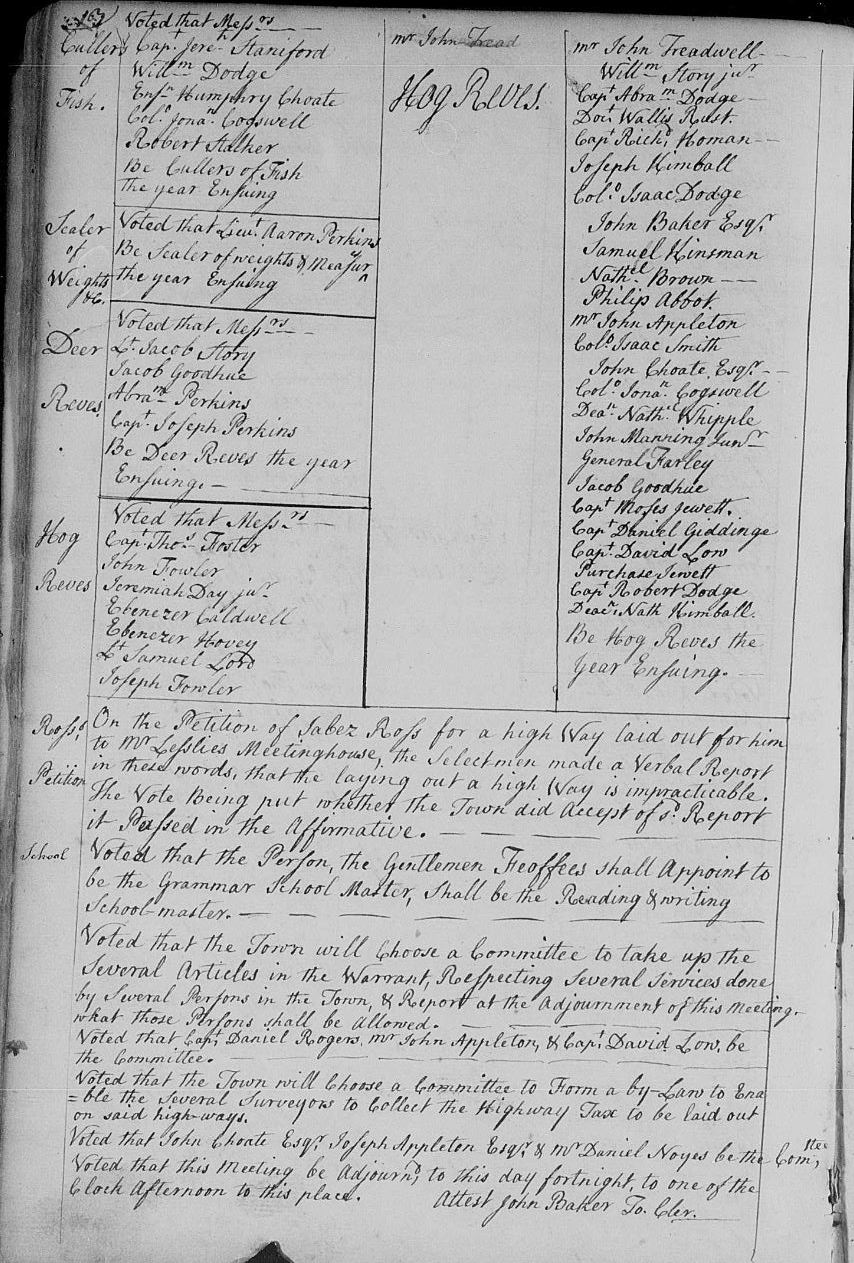 163
Cullers
of
Fish.
Voted that Messrs
Capt. Jere.h Staniford
Willm Dodge
Ensn Humphry Choate
Col.o Jonan. Cogswell
Robert Stalker
Be Cullers of Fish
the year Ensuing
Sealer
of
Weights
&c.
Voted that Lieut. Aaron Perkins
Be Sealer of weights & Measurs
the year Ensuing
Deer
Reves
Voted that Messrs
Lt. Jacob Story
Jacob Goodhue
Abram Perkins
Capt. Joseph Perkins
Be Deer Reves the year
Ensuing. —
Hog
Reves
Voted that Messrs
Capt. Thos Foster
John Fowler
Jeremiah Day jur.
Ebenezer Caldwell
Ebenezer Hovey
Lt Samuel Lord
Joseph Fowler
mr John Tread
Hog Reves.
mr John Treadwell
Willm Story jur
Capt Abram Dodge
Doct. Wallis Rust.
Capt Richd. Homan
Joseph Kimball
Col.o Isaac Dodge
John Baker Esqr.
Samuel Kinsman
Nathel. Brown
Philip Abbot.
mr John Appleton
Col.o Isaac Smith
John Choate Esqr.
Col.o Jonan. Cogswell
Dean. Nathl. Whipple
John Manning Junr
General Farley
Jacob Goodhue
Capt Moses Jewett.
Capt Daniel Giddinge
Capt. David Low
Purchase Jewett
Capt Robert Dodge
Deacn. Nath Kimball.
Be Hog Reves the
Year Ensuing. —
Ross's
Petition
On the Petition of Jabez Ross for a high Way laid out for him
to Mr Lesslies Meetinghouse, the Selectmen made a Verbal Report
in these words, that the laying out a high Way is impracticable.
The Vote Being put whether the Town did Accept of sd. Report
it Passed in the Affirmative. —
School
Voted that the Person, the Gentlemen Feoffees shall Appoint to
be the Grammar School Master, Shall be the Reading & writing
School-master. —
Voted that the Town will Choose a Committee to take up the
Several Articles in the Warrant, Respecting Several Services done
by Several Persons in the Town, & Report at the Adjournment of this Meeting.
what those Persons shall be Allowed. —
Voted that Capt. Daniel Rogers, mr John Appleton, & Capt. David Low, be
the Committee. —
Voted that the Town will Choose a Committee to Form a by-Law to Ena
=ble the Several Surveyors to Collect the Highway Tax to be laid out
on said high-ways.
Voted that John Choate Esqr. Joseph Appleton Esqr. & mr Daniel Noyes be the Comttee,
Voted that this Meeting be Adjournd, to this day fortnight, to one of the
Clock Afternoon to this place.
Attest John Baker To. Cler.